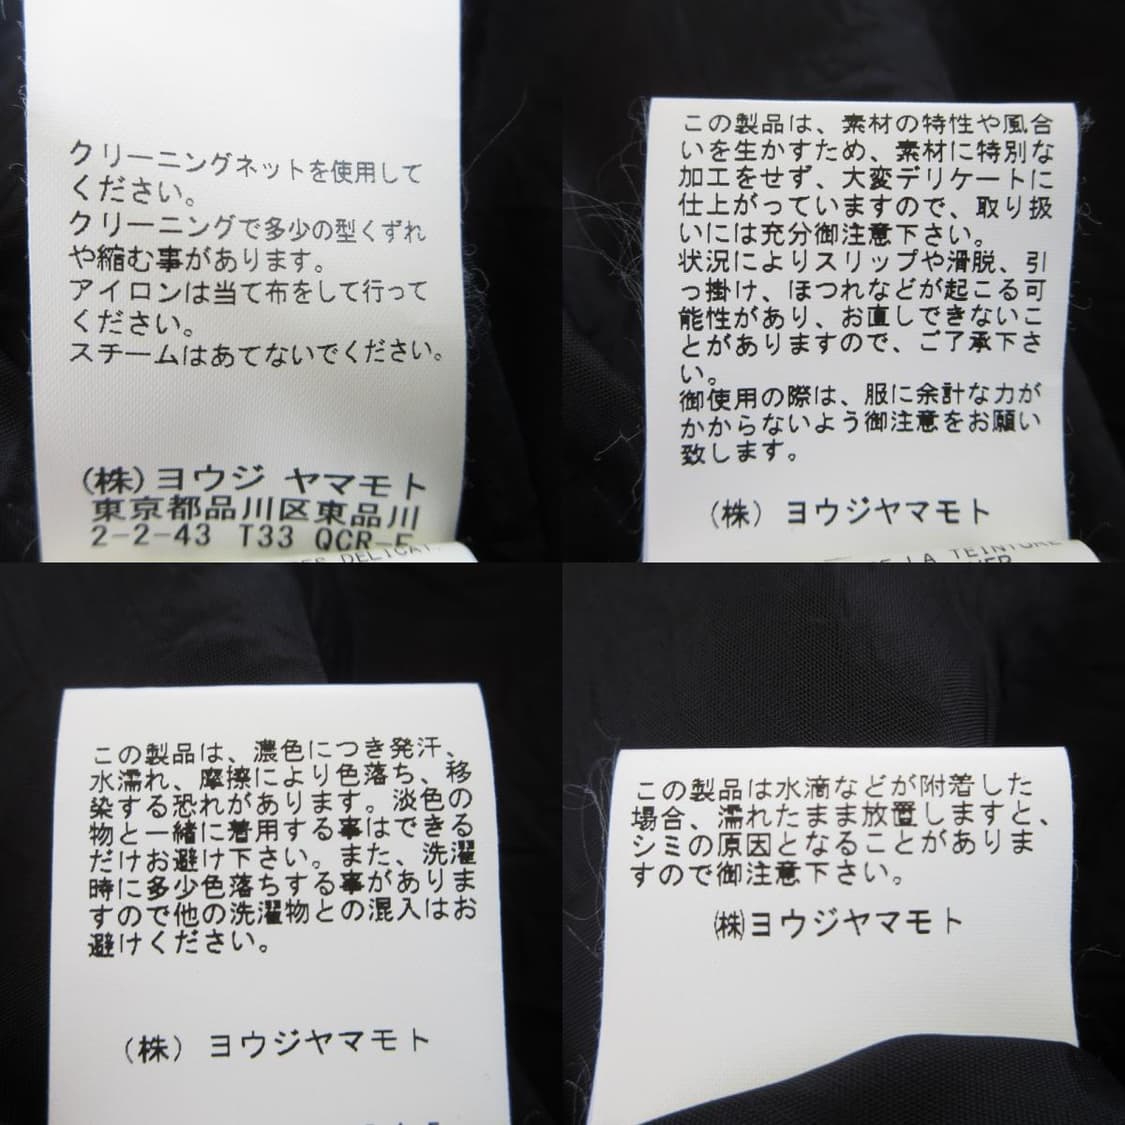 クリーニングネットを使用して
ください。
クリーニングで多少の型くずれ
や縮む事があります。
アイロンは当て布をして行って
ください。
スチームはあてないでください。
(株)ヨウジ ヤマモト
東京都品川区東品川
2-2-43 T33 QCR-F
DELICAT
この製品は、素材の特性や風合
いを生かすため、素材に特別な
加工をせず、大変デリケートに
仕上がっていますので、取り扱
いには充分御注意下さい。
状況によりスリップや滑脱、引
っ掛け、ほつれなどが起こる可
能性があり、お直しできないこ
とがありますので、ご了承下さ
い。
御使用の際は、服に余計な力が
かからないよう御注意をお願い
致します。
(株) ヨウジヤマモト
LA TEINTURE
この製品は、濃色につき発汗、
水濡れ、摩擦により色落ち、移
染する恐れがあります。淡色の
物と一緒に着用する事はできる
だけお避け下さい。また、洗濯
時に多少色落ちする事がありま
すので他の洗濯物との混入はお
避けください。
(株) ヨウジヤマモト
この製品は水滴などが附着した
場合、濡れたまま放置しますと、
シミの原因となることがありま
すので御注意下さい。
㈱ヨウジヤマモト